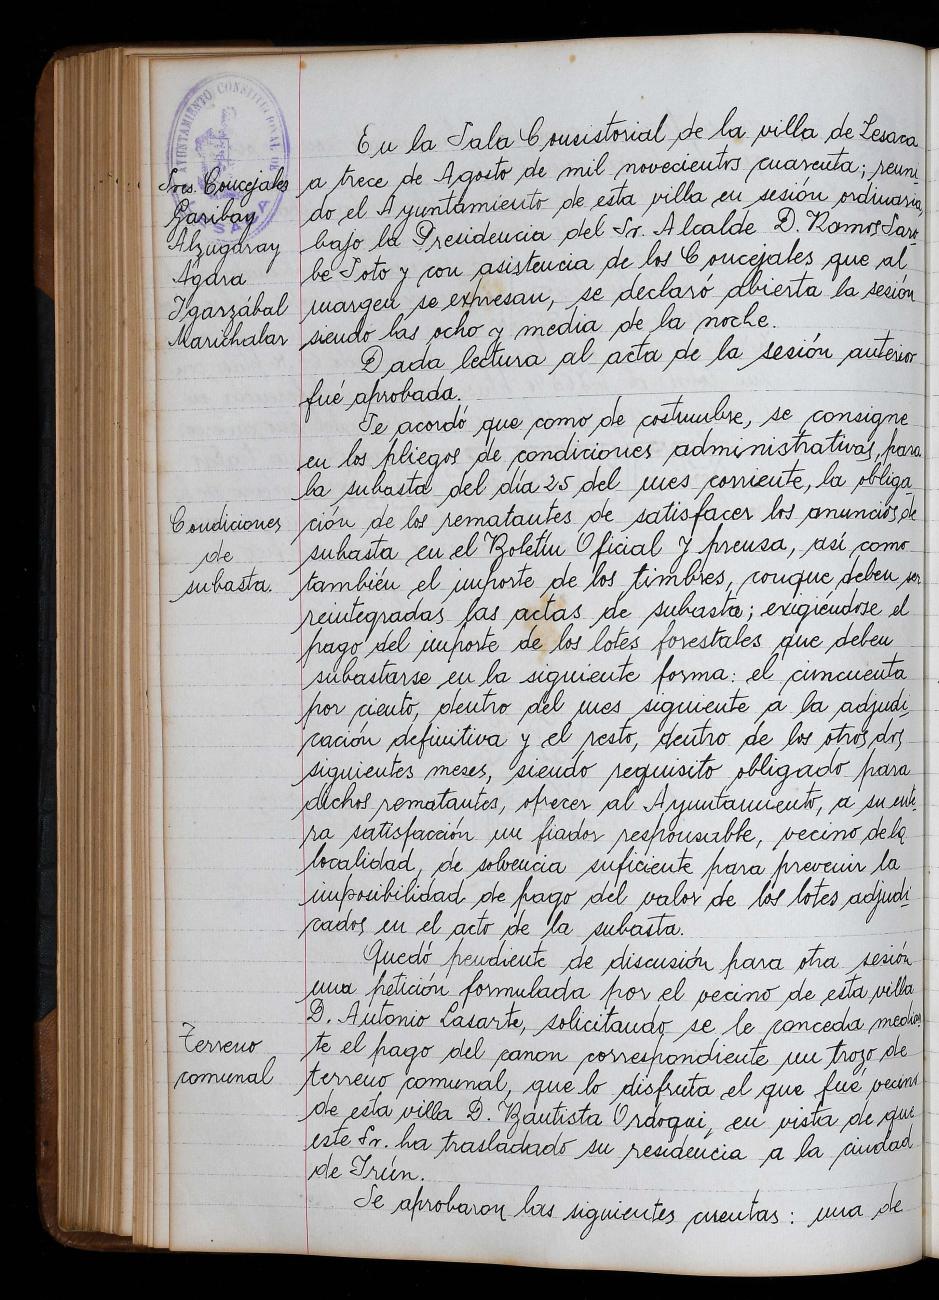 AYUNTAMIENTO CONSTITUCIONAL DE
Sres. Concejales
Garibay
Alzugaray
Agara
Igarzábal
Marichalar
En la Sala Consistorial de la villa de Lesaca
a trece de Agosto de mil novecientos cuarenta; reuni-
do el Ayuntamiento de esta villa en sesión ordinaria,
bajo la Presidencia del Sr. Alcalde D. Ramos Saro-
be Soto y con asistencia de los Concejales que al
margen se expresan, se declaró abierta la sesión
siendo las ocho y media de la noche.
Dada lectura al acta de la sesión anterior
fué aprobada.
Condiciones
de
subasta.
Se acordó que como de costumbre, se consigne
en los pliegos de condiciones administrativas, para
la subasta del día 25 del mes corriente, la obliga-
ción de los rematantes de satisfacer los anuncios de
subasta en el Boletín Oficial y prensa, así como
también el importe de los timbres, conque deben ser
reintegradas las actas de subasta; exigiéndose el
pago del importe de los lotes forestales que deben
subastarse en la siguiente forma: el cincuenta
por ciento, dentro del mes siguiente a la adjudi-
cación definitiva y el resto, dentro de los otros dos
siguientes meses, siendo requisito obligado para
dichos rematantes, ofrecer al Ayuntamiento, a su ente-
ra satisfacción un fiador responsable, vecino de la
localidad, de solvencia suficiente para prevenir la
imposibilidad de pago del valor de los lotes adjudi-
cados en el acto de la subasta.
Terreno
comunal
Quedó pendiente de discusión para otra sesión
una petición formulada por el vecino de esta villa
D. Antonio Lasarte, solicitando se le conceda median-
te el pago del canon correspondiente un trozo de
terreno comunal, que lo disfruta el que fué vecino
de esta villa D. Bautista Ordoqui, en vista de que
este Sr. ha trasladado su residencia a la ciudad
de Irún.
Se aprobaron las siguientes cuentas: una de